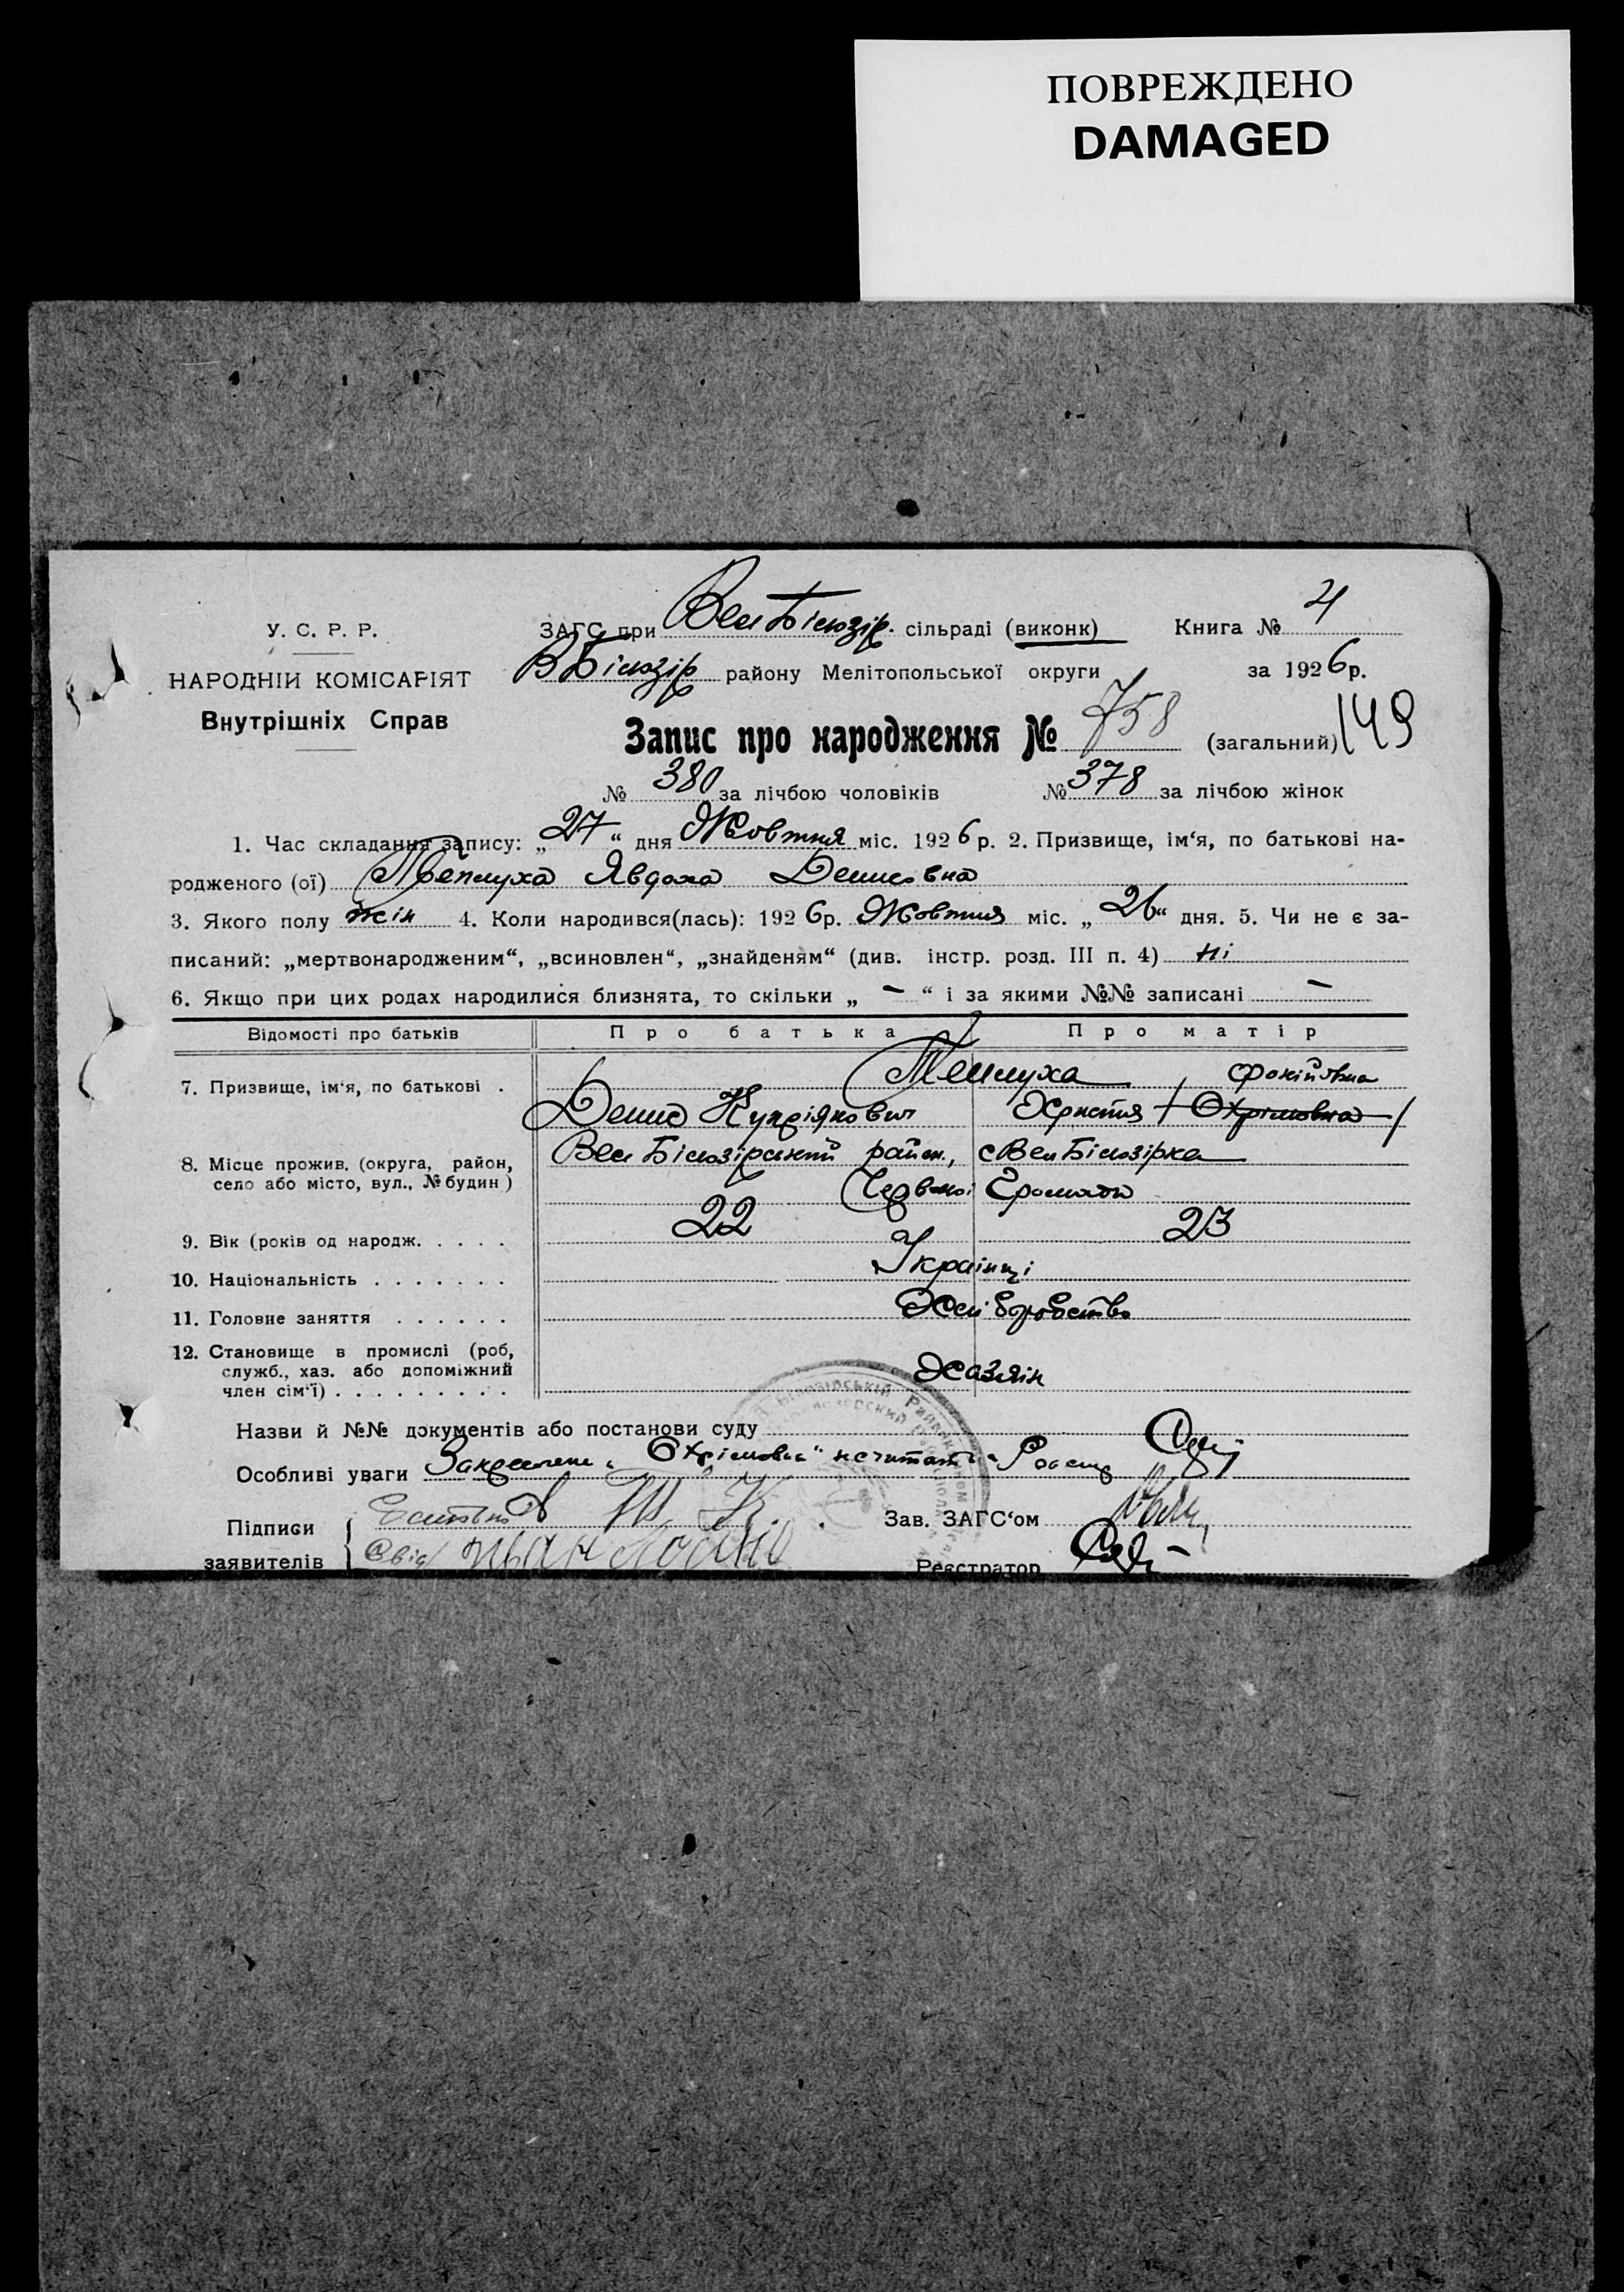 ПОВРЕЖДЕНО
DAMAGED
У. С. Р. Р.
НАРОДНІЙ КОМІСАРІЯТ
Внутрішніх Справ
ЗАГС при Вел Білозір. сільраді (виконк) Книга № 4
В Білозір району Мелітопольської округи за 1926 р.
Запис про народження № 758 (загальний) 149
№ 380 за лічбою чоловіків № 378 за лічбою жінок
1. Час складання запису: „27“ дня Жовтня міс. 1926 р. 2. Призвище, ім‘я, по батькові на-
родженого (ої) Явдоха Денисовна
3. Якого полу жін 4. Коли народився(лась): 1926 р. Жовтня міс. „26“ дня. 5. Чи не є за-
писаний: „мертвонародженим“, „всиновлен“, „знайденям“ (див. інстр. розд. III п. 4) ні
6. Якщо при цих родах народилися близнята, то скільки „ – “ і за якими №№ записані –
Відомості про батьків Про батька Про матір
7. Призвище, ім‘я, по батькові . Фокійовна
Денис Купріянович Христя / Охрімовна /
8. Місце прожив. (округа, район, село або місто, вул., № будин) Вел Білозірський район., с Вел Білозірка
Червоної Громади
9. Вік (років од народж. . . . . 22 23
10. Національність . . . . . . . Українці
11. Головне заняття . . . . . . Хліборобство
12. Становище в промислі (роб, служб., хаз. або допоміжний член сім‘ї) . . . . . . . . . Хазяїн
Назви й №№ документів або постанови суду
Особливі уваги Закреслене „Охрімовна“ не читать
Підписи
заявителів
Зав. ЗАГС‘ом
Реєстратор